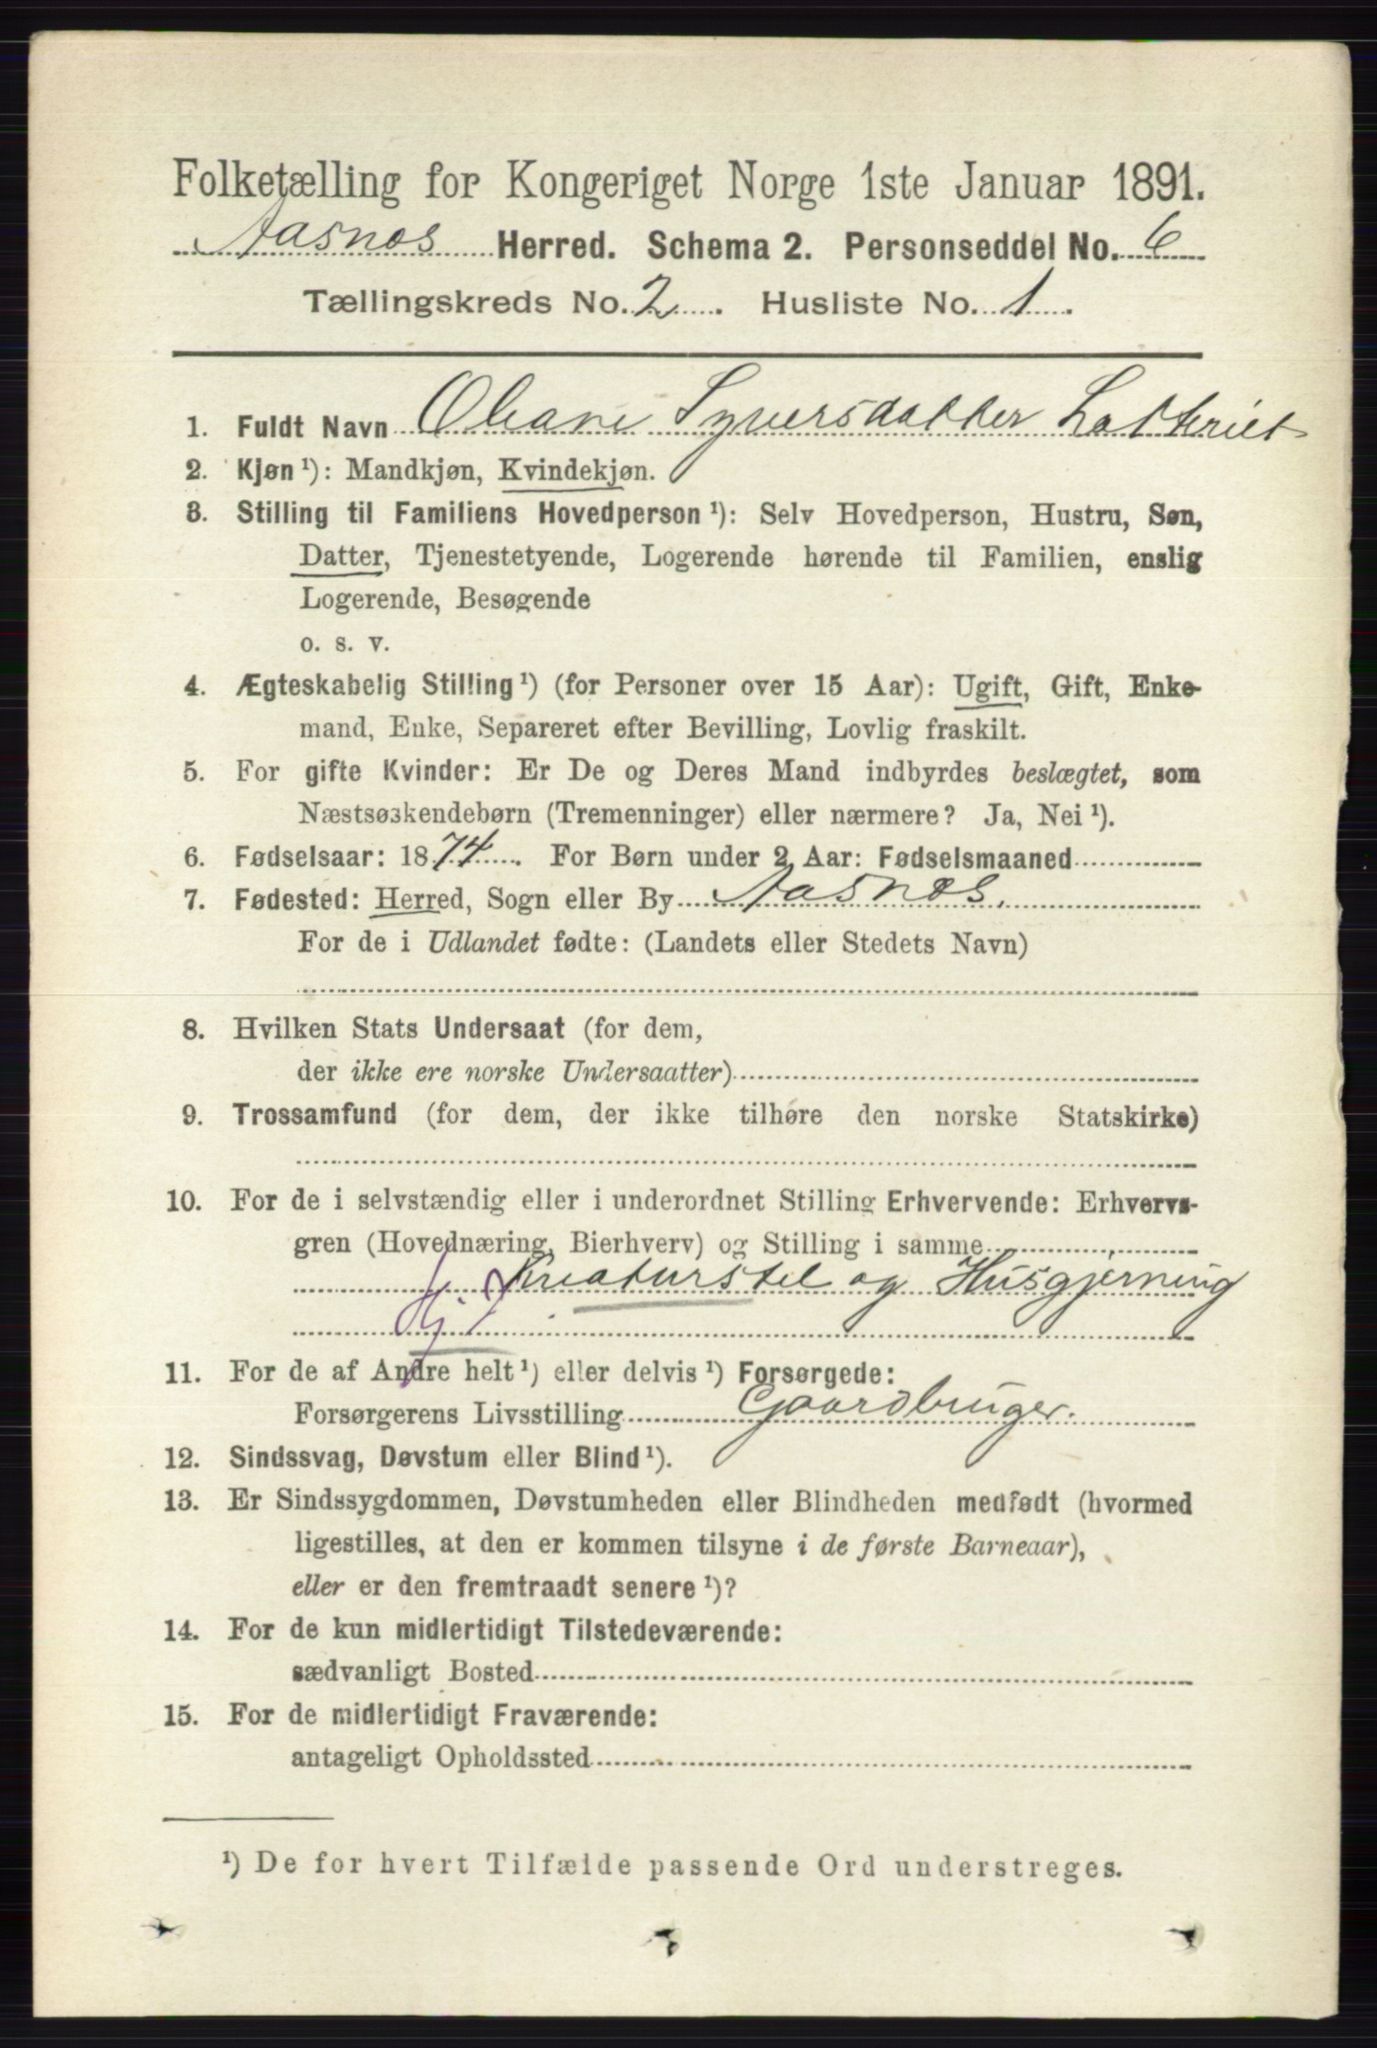 Folketælling for Kongeriget Norge 1ste Januar 1891.
Aasnes Herred. Schema 2. Personseddel No. 6
Tællingskreds No. 2. Husliste No. 1.
1. Fuldt Navn Oleane Syversdatter
2. Kjøn ¹): Mandkjøn, Kvindekjøn.
3. Stilling til Familiens Hovedperson ¹): Selv Hovedperson, Hustru, Søn,
Datter, Tjenestetyende, Logerende hørende til Familien, enslig
Logerende, Besøgende
o. s. v.
4. Ægteskabelig Stilling ¹) (for Personer over 15 Aar): Ugift, Gift, Enke-
mand, Enke, Separeret efter Bevilling, Lovlig fraskilt.
5. For gifte Kvinder: Er De og Deres Mand indbyrdes beslægtet, som
Næstsøskendebørn (Tremenninger) eller nærmere? Ja, Nei ¹).
6. Fødselsaar: 1874. For Børn under 2 Aar: Fødselsmaaned
7. Fødested: Herred, Sogn eller By Aasnes.
For de i Udlandet fødte: (Landets eller Stedets Navn)
8. Hvilken Stats Undersaat (for dem,
der ikke ere norske Undersaatter)
9. Trossamfund (for dem, der ikke tilhøre den norske Statskirke)
10. For de i selvstændig eller i underordnet Stilling Erhvervende: Erhvervs-
gren (Hovednæring, Bierhverv) og Stilling i samme
Kreaturstel og Husgjerning
11. For de af Andre helt ¹) eller delvis ¹) Forsørgede:
Forsørgerens Livsstilling Gaardbruger.
12. Sindssvag, Døvstum eller Blind ¹).
13. Er Sindssygdommen, Døvstumheden eller Blindheden medfødt (hvormed
ligestilles, at den er kommen tilsyne i de første Barneaar),
eller er den fremtraadt senere ¹)?
14. For de kun midlertidigt Tilstedeværende:
sædvanligt Bosted
15. For de midlertidigt Fraværende:
antageligt Opholdssted
¹) De for hvert Tilfælde passende Ord understreges.